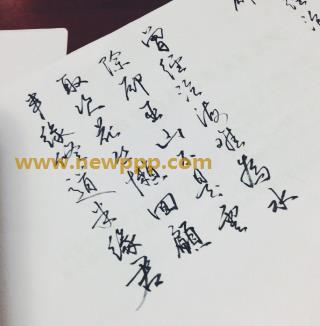 曾经沧海难為水
除却巫山不是雲
取次花丛懒回顧
半缘修道半缘君
www.newppp.com